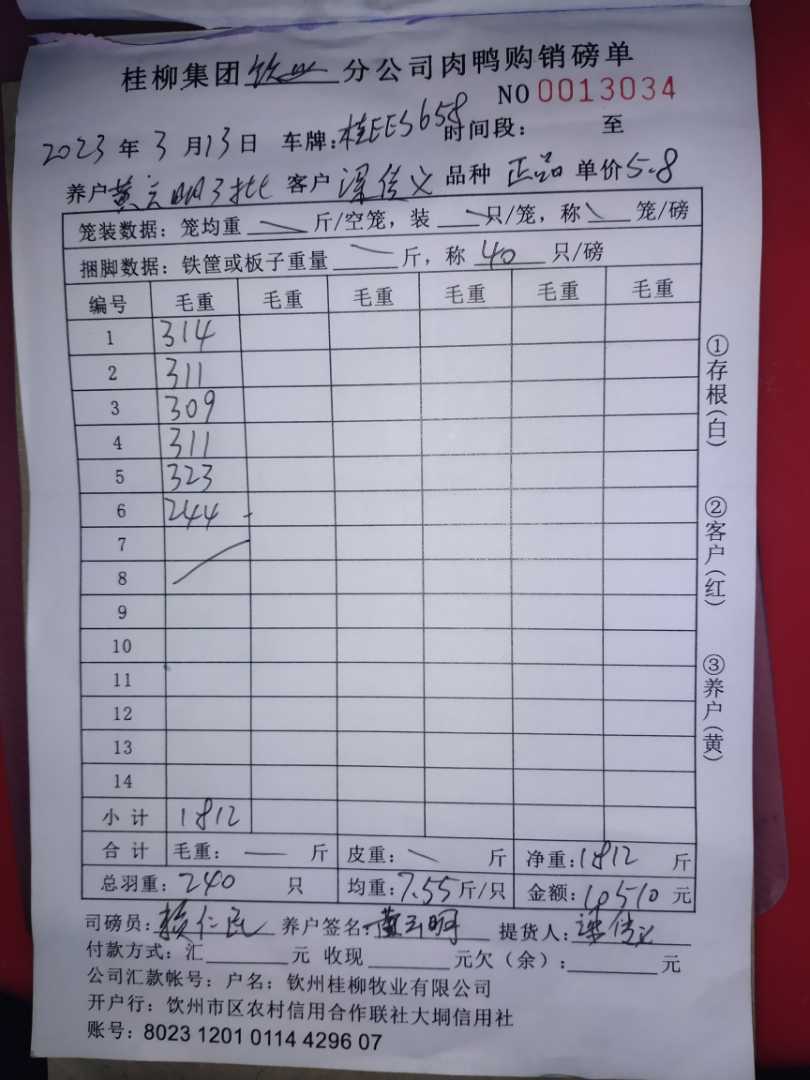 桂柳集团钦州分公司肉鸭购销磅单
NO 0013034
2023年3月13日 车牌:桂EES658 时间段: 至
养户黄云明3批 客户梁信义 品种 正品 单价5.8
笼装数据：笼均重 斤/空笼，装 只/笼，称 笼/磅
捆脚数据：铁筐或板子重量 斤，称 40 只/磅
编号 毛重 毛重 毛重 毛重 毛重 毛重
1 314
2 311
3 309
4 311
5 323
6 244
7
8
9
10
11
12
13
14
小计 1812
合计 毛重： — 斤 皮重： 斤 净重：1812 斤
总羽重：240 只 均重：7.55斤/只 金额：10510元
司磅员：赖仁民 养户签名：黄云明 提货人：梁信义
付款方式：汇 元 收现 元欠（余）： 元
公司汇款帐号：户名：钦州桂柳牧业有限公司
开户行：钦州市区农村信用合作联社大垌信用社
账号：8023 1201 0114 4296 07
①存根（白）
②客户（红）
③养户（黄）